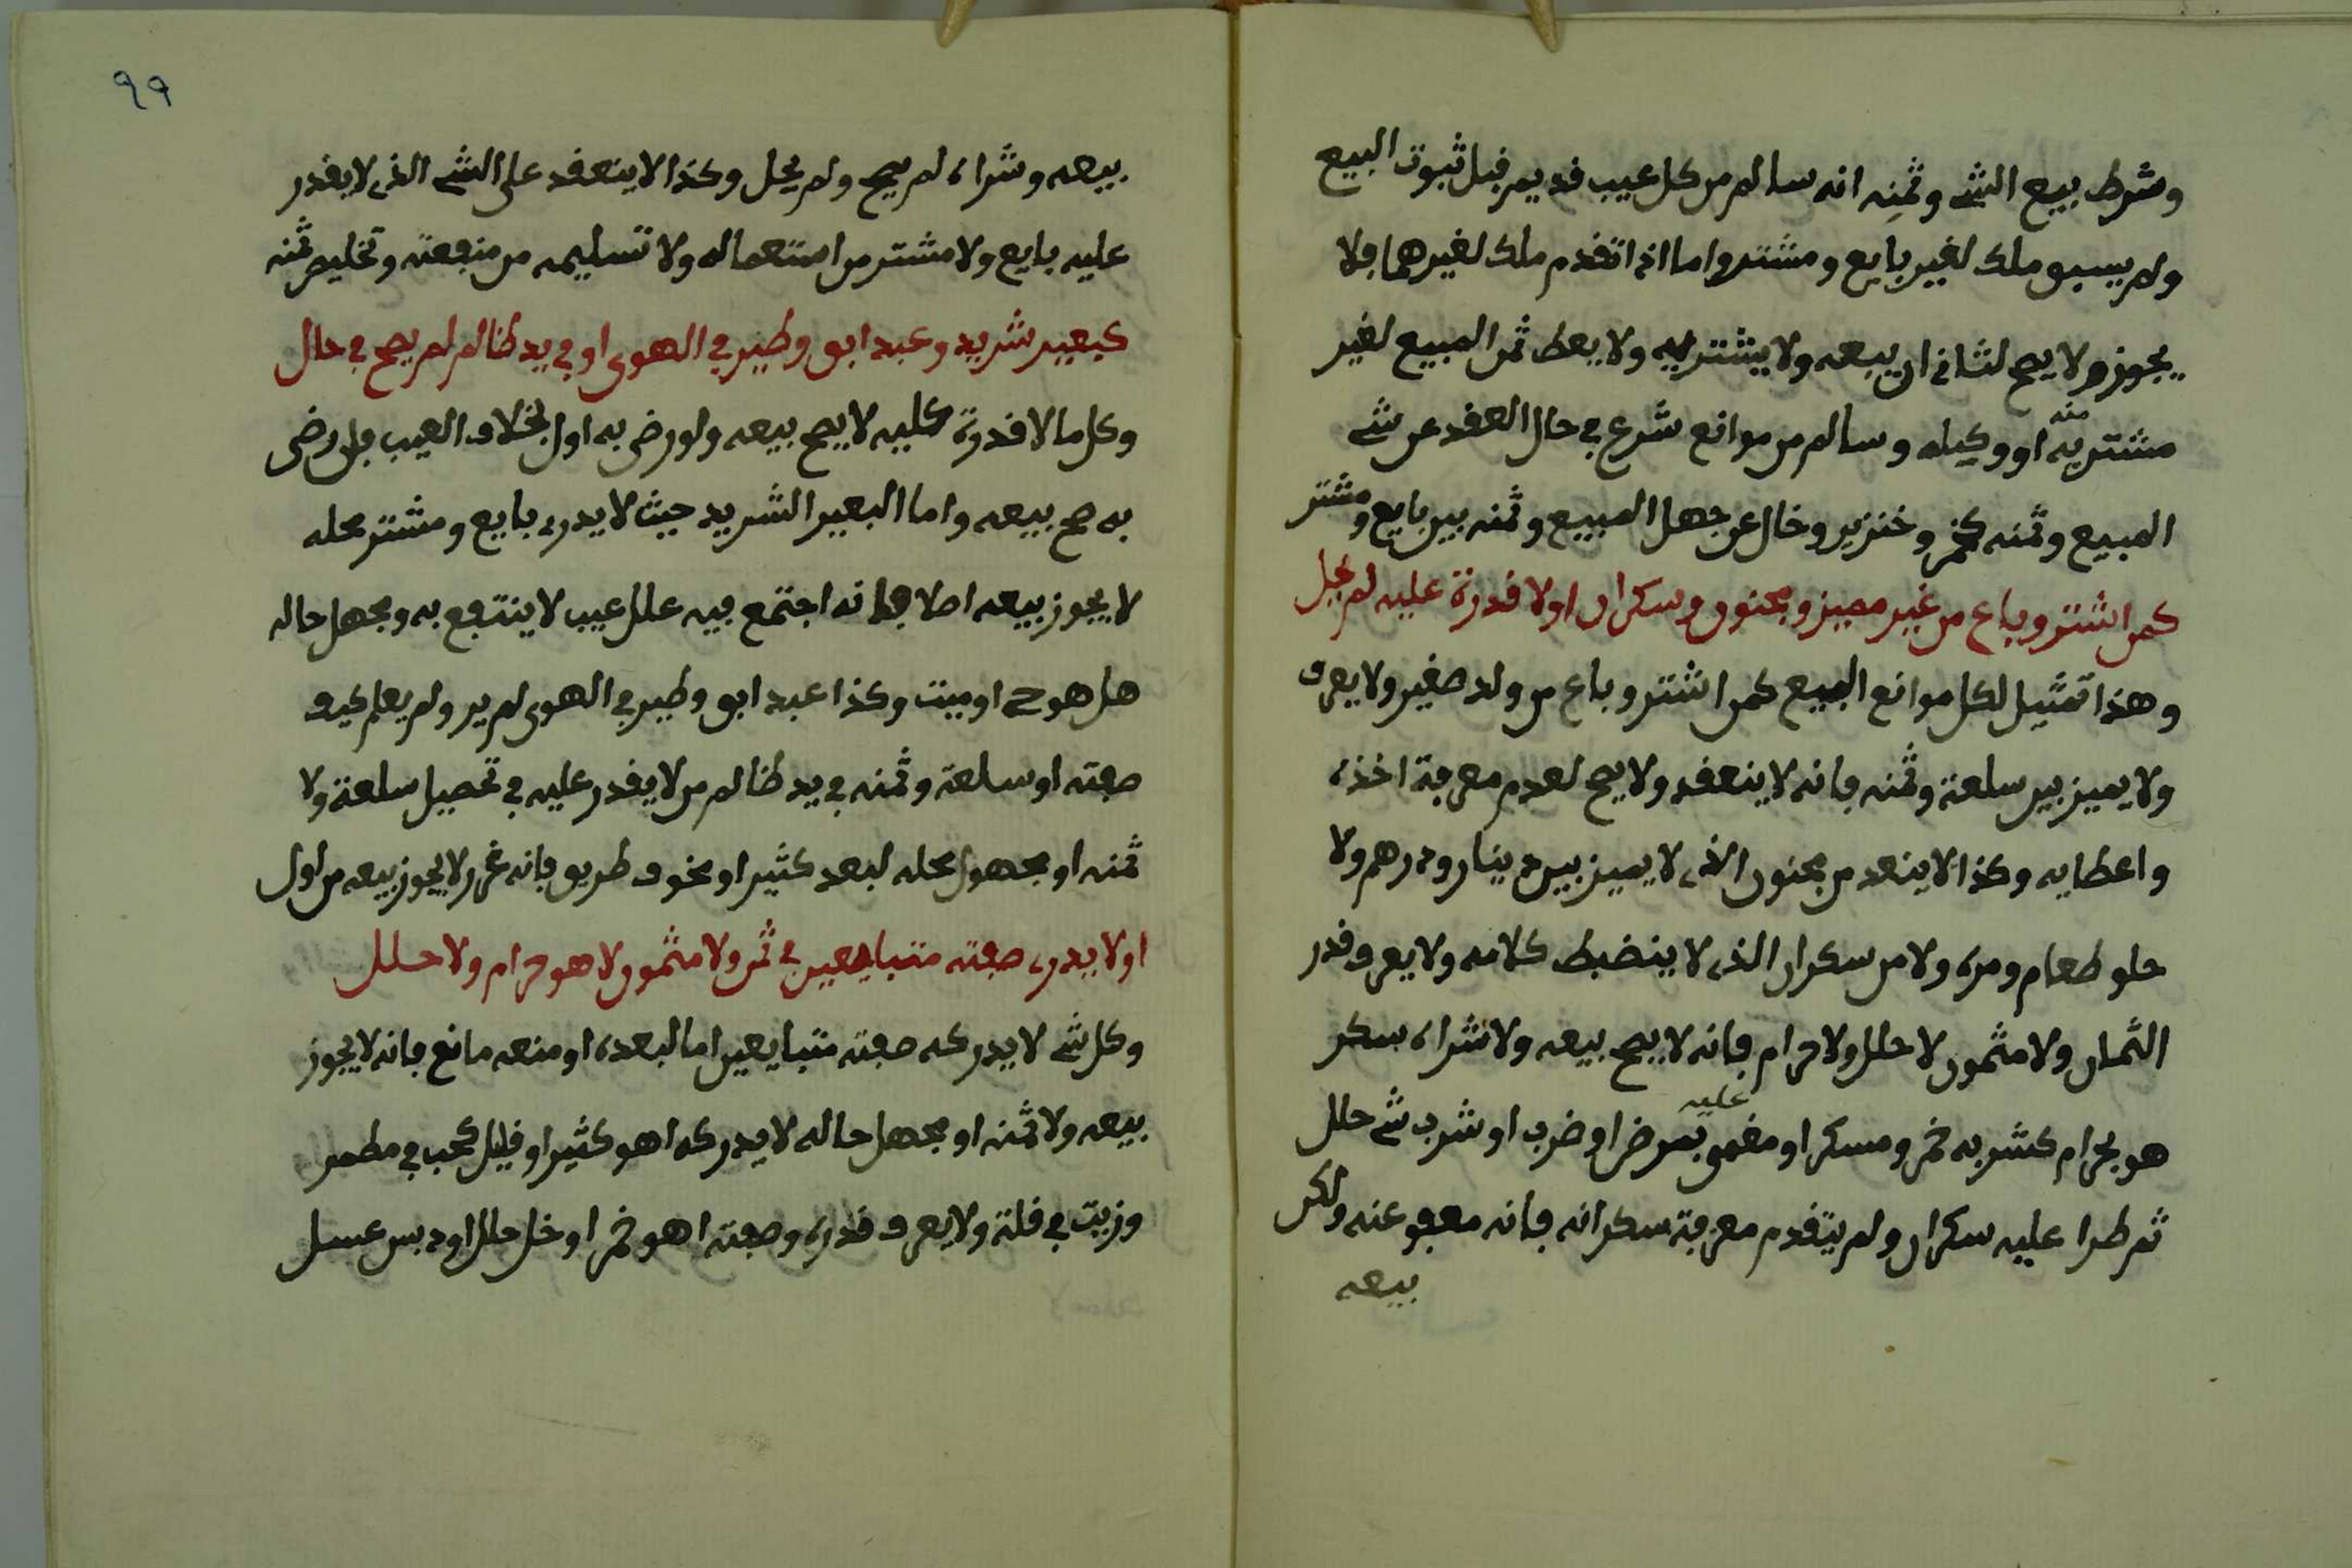 وشرط بيع الشے وثمنِه انه سالم من كل عيب فديم فبل ثبوت البيع
ولم يسبو ملك لغير بايع ومشتر واما اذا تفدم ملك لغيرهما ڢلا
يجوز ولا يصح لثانے ان يبيعه ولا يشتريه ولا يعط ثمن المبيع لغير
مشتريه منه او وكيله وسالم من موانع شرع ڢے حال العفد عن شے
المبيع وثمنه كخمر وخنزير وخال عن جهل المبيع وثمنه بين بايع ومشتر
كمن اشتر وباع من غير مميز ومجنون وسكران او لا فدرة عليه لم يحل
وهذا تمثيل لكل موانع البيع كمن اشتر وباع من ولد صغير ولا يعرڢ
ولا يميز بين سلعة وثمنه ڢانه لا ينعفد ولا يصح لعدم معرڢة اخذه
واعطايه وكذا لا ينعفد من مجنون الذے لا يميز بين دينار ودرهم ولا
حلو طعام ومره ولا من سكران الذے لا ينضبط كلامه ولا يعرڢ فدر
الثمان ولا مثمون لا حلل ولا حرام ڢانه لا يصح بيعه ولا شراه سكر
هو بحرام كشربه خمر ومسكر او مغمى عليه بمرض او ضرب او شرب شے حلل
ثم طرا عليه سكران ولم يتفدم معرڢة سكرانه ڢانه معڢو عنه ولكن
بيعه
٩٩
بيعه وشراه لم يصح ولم يحل وكذا لا ينعفد على الشے الذے لا يفدر
عليه بايع ولا مشتر من استعماله ولا تسليمه من منڢعته وتخليص ثمنه
كبعير شريد وعبد ابو وطير ڢے الهوى او ڢے يد ظالم لم يصح ڢے حال
وكل ما لا فدرة عليه لا يصح بيعه ولو رضى به اول بخلاڢ العيب ڢان رضى
به صح بيعه واما البعير الشريد حيث لا يدرے بايع ومشتر محله
لا يجوز بيعه اصلا ڢانه اجتمع ڢيه علل عيب لا ينتڢع به ومجهل حاله
هل هو حے او ميت وكذا عبد ابو وطير ڢے الهوى لم ير ولم يعلم كيڢ
صڢته او سلعة وثمنه ڢے يد ظالم من لا يفدر عليه ڢے تحصيل سلعة ولا
ثمنه او مجهول محله لبعد كثير او مخوڢ طريو ڢانه غرر لا يجوز بيعه من اول
او لا يدرے صڢته متبايعين ڢے ثمن ولا مثمون ولا هو حرام ولا حلل
وكل شے لا يدركه صڢته متبايعين اما لبعده او منعه مانع ڢانه لا يجوز
بيعه ولا ثمنه او مجهل حاله لا يدركه اهو كثير او فليل كحب ڢے مطمر
وزيت ڢے فلة ولا يعرڢ فدره وصڢته اهو خمر او خل حلل او دبس عسل